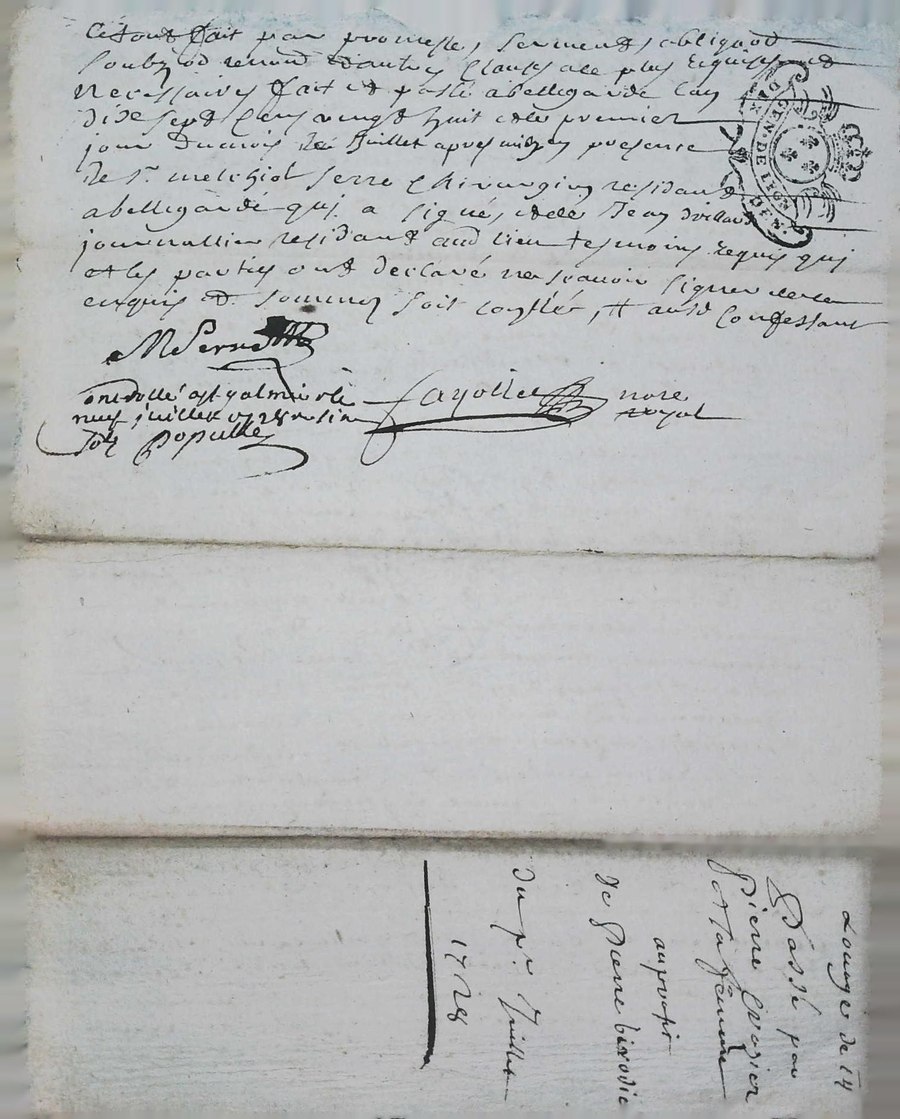 ce tout fait par promesse, serments obligaôn
soubzôn renonô & autres clauses ale plus requises et
necessaires fait et passé a bellegarde lan
dix sept cens vingt huit et le premier
jour du mois de Juillet apres midy en presence
de Sr. melchiol serre chirurgien residant
a bellegarde qui a signés et de Jean
journallier residant aud lieu tesmoins requis qui
et les parties ont declaré ne scavoir signer de ce
enquis et sommés soit
M Serre
GEN. DE LION
a st galmier le
neuf juillet 1728
Populle
fayolle
nore
royal
Passé par
Pierre
et sa femme
au proufi
de Pierre
du pr. Juillet
1728